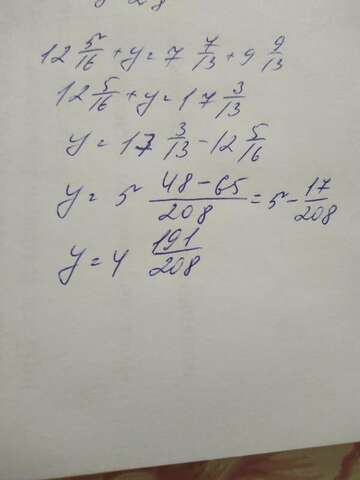 12 5/16 + y = 7 7/13 + 9 9/13
12 5/16 + y = 17 3/13
y = 17 3/13 - 12 5/16
y = 5 (48-65)/208 = 5 - 17/208
y = 4 191/208